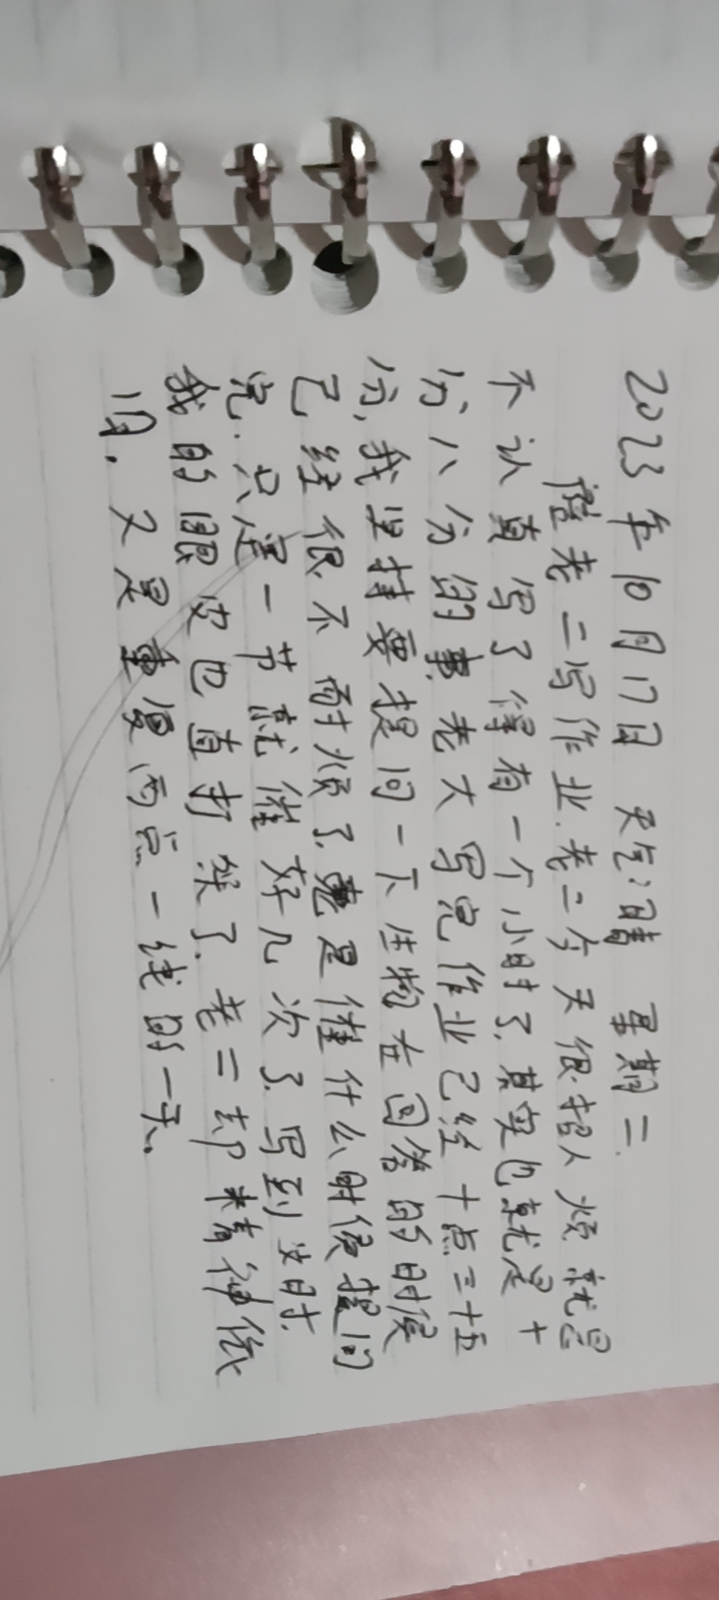 2023年10月17日 天气:晴 星期二.
陪老二写作业.老二今天很招人烦就是
不认真写了得有一个小时了.其实也就是十
分八分的事.老大写完作业已经十点三十五
分,我坚持要提问一下生物在回答的时候
已经很不耐烦了.总是催什么时候提问
完.只这一节就催好几次了.写到这时.
我的眼皮也直打架了.老二却精神依
旧.又是重复两点一线的一天.